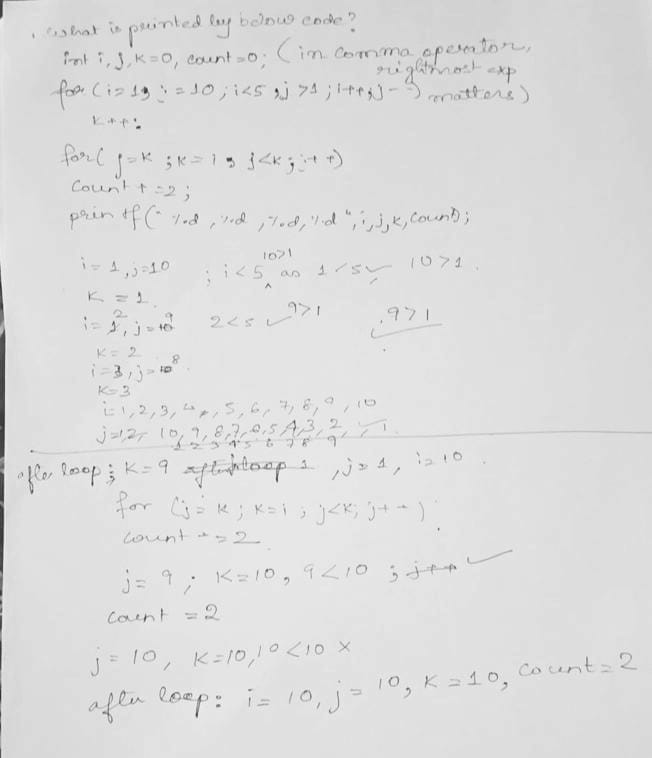 . what is printed by below code?
int i, j, k=0, count=0; (in comma operator,
rightmost exp
for (i=1, j=10; i<5, j>1; i++, j--) matters)
k++;
for( j=k ; k=i, j<k; j++)
Count +=2;
printf(" %d, %d, %d, %d", i, j, k, count);
10>1
i= 1, j=10 ; i<5 as 1<5 ✓ 10>1.
K = 1.
2 9
i= 1, j=10 2<5 ✓ 9>1 9>1
K= 2
8
i=3, j=10
K=3
i=1,2,3,4,5,6,7,8,9,10
j= 10,9,8,7,6,5,4,3,2,1.
1 2 3 4 5 6 7 8 9
after loop; K=9 , j=1, i=10.
for (j= k; k=i; j<k; j++)
count +=2
j= 9; K=10, 9<10 ; j++ ✓
count =2
j= 10, K=10, 10<10 x
after loop: i= 10, j= 10, K=10, Count=2